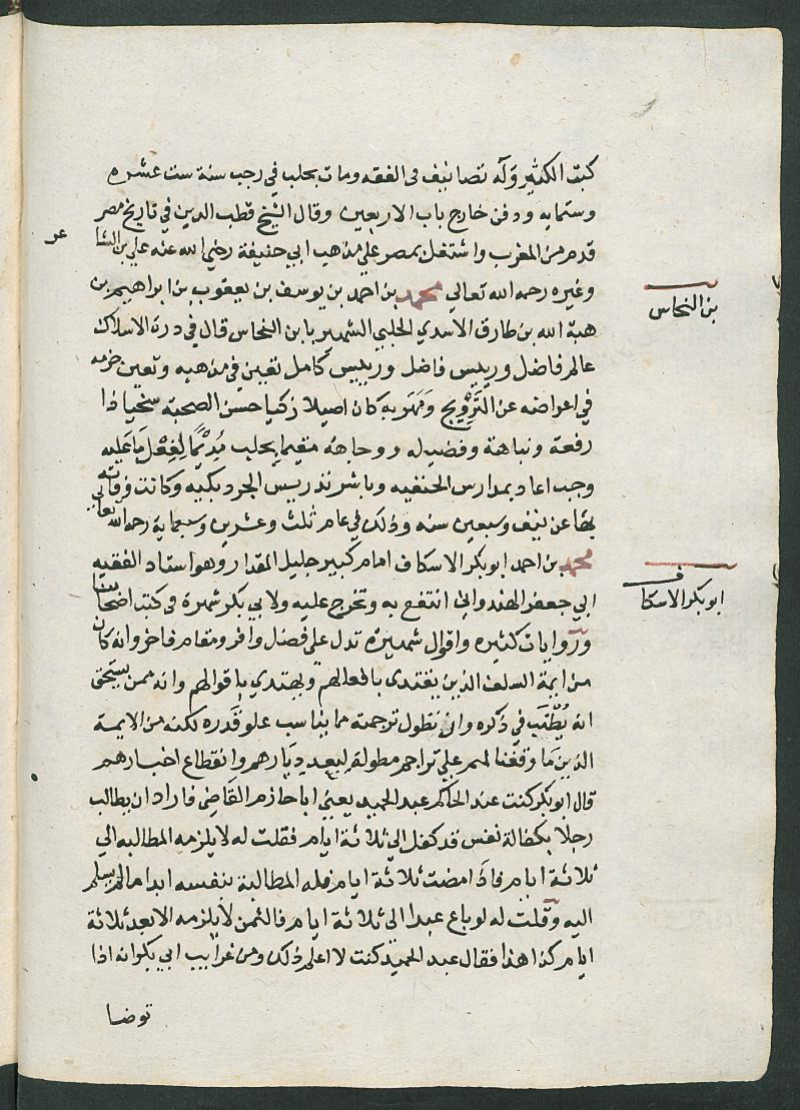 كتبت الكثير وله تصانيف في الفقه ومات بحلب في رجب سنة ست عشره
وستمايه ودفن خارج باب الاربعين وقال الشيخ قطب الدين في تاريخ مصر
قدم من المغرب واشتغل بمصر علي مذهب ابي حنيفة رضي الله عنه علي بن الشا
عر
وغيره رحمه الله تعالي محمد بن احمد بن يوسف بن يعقوب بن ابراهيم بن
بن النحاس
هبة الله بن طارق الاسدي الحلبي الشهير بابن النحاس قال في درة الاسلاك
عالم فاضل ورييس فاضل ورييس كامل تعين في مذهبه وتعين حزمه
في اعراضه عن الترويج كان اصيلا زكيا حسن الصحبة سخيا ذا
رفعة ونباهة وفضيله ووجاهه مقيما بحلب مديما لفعل ما عليه
وجب اعاد بمدارس الحنفيه وباشر تدريس الجرديكيه وكانت وفاته
بها عن نيف وسبعين سنه وذلك في عام ثلث وعشرين وسبعماية رحمه الله تعالي
محمد بن احمد ابو بكر الاسكاف امام كبير جليل المقدار وهو استاد الفقيه
ابو بكر الاسكاف
ابي جعفر الهندواني انتفع به وتخرج عليه ولابي بكر شهرة في كتب اصحابنا
وروايات كثيره واقوال شهيره تدل علي فضل وافر ومقام فاخر وانه كان
من ايمة السلف الذين يقتدى بافعالهم ويهتدي باقوالهم وانه ممن يستحق
انه يُطنَب في ذكره وان تطول ترجمته مما يناسب علو قدره لكنه من الايمة
الذين ما وقفنا لهم علي تراجم مطولة لبعد ديارهم وانقطاع اخبارهم
قال ابو بكر كنت عند الحاكم عبد الحميد يعني ابا حازم القاضي فاراد ان يطالب
رجلا بكفالة نفس قد كفل الي ثلاثة ايام فقلت له لا يلزمه المطالبه الي
ثلاثة ايام فاذا مضت ثلاثة ايام فله المطالبة بنفسه ابدا ما لم يسلم
اليه وقلت له لو باع عبدا الي ثلاثة ايام فالثمن لا يلزمه الا بعد ثلاثة
ايام كذا هذا فقال عبد الحميد كنت لا اعلم ذلك ومن غرايب ابي بكر انه اذا
توضا